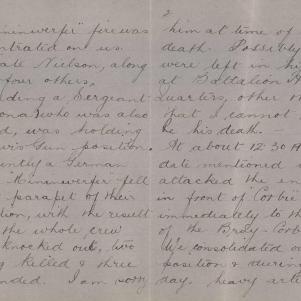 "Minenwerfer" fire was
ntrated on us.
ate Nielson, along
four others,
ding a Sergeant
ona, who was also
d, was holding
wis Gun position.
ntly a German
"Minenwerfer" fell
parapet of their
tion, with the result
the whole crew
knocked out, two
g killed & three
nded. I am sorry
2
him at time of
death. Possibly
were left in his
at Battalion H
quarters, other th
that I cannot
he his death. —
At about 12.30 A
date mentioned
attacked the en
in front of "Corbie
immediately to th
of the Bray-Corb
We consolidated ou
position & during
day, heavy artil